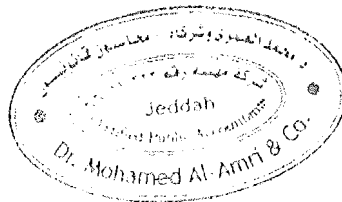 د. محمد العمري وشركاه . محاسبون قانونيون
شركة مهنية رقم
Jeddah
Certified Public Accountants
Dr. Mohamed Al-Amri & Co.